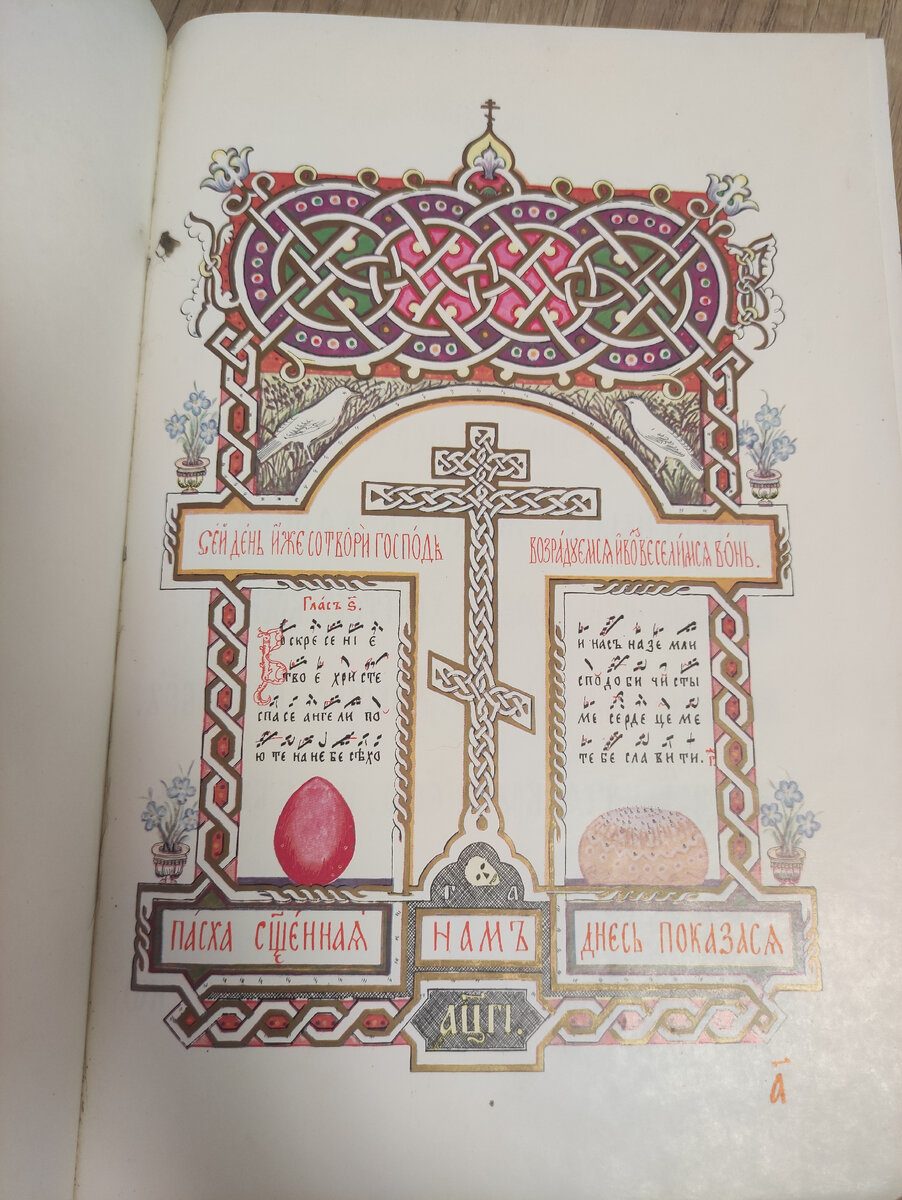 Сей день и́же сотворѝ госпо́дь возра́дуемся и҆ возвесели́мся во́нь.
Гла́съ ѕ҃.
Воскресениіє
твоє христе
спасе ангели по
ют на небесѣхо
и насъ на земли
сподоби чисты
ме сердецеме
тебе славити.
Г А
па́сха сщ҃е́нная намъ днесь показася
АЦ҃ГІ.
а҃